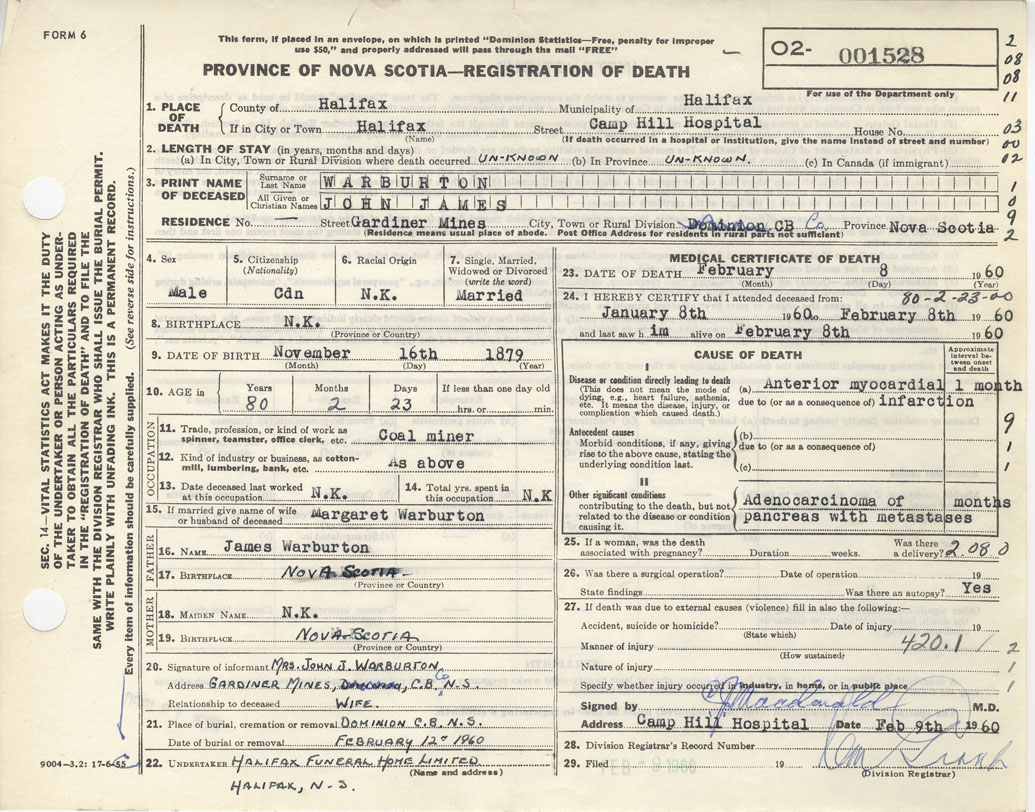 FORM 6
This form, if placed in an envelope, on which is printed "Dominion Statistics—Free, penalty for improper
use $50," and properly addressed will pass through the mail "FREE"
PROVINCE OF NOVA SCOTIA—REGISTRATION OF DEATH
O2- 001528
For use of the Department only
2
08
08
11
03
00
02
1
0
9
2
SEC. 14—VITAL STATISTICS ACT MAKES IT THE DUTY
OF THE UNDERTAKER OR PERSON ACTING AS UNDER-
TAKER TO OBTAIN ALL THE PARTICULARS REQUIRED
IN THE "REGISTRATION OF DEATH" AND FILE THE
SAME WITH THE DIVISION REGISTRAR WHO SHALL ISSUE THE BURIAL PERMIT.
WRITE PLAINLY WITH UNFADING INK. THIS IS A PERMANENT RECORD.
Every item of information should be carefully supplied. (See reverse side for instructions.)
1. PLACE OF DEATH
County of Halifax Municipality of Halifax
If in City or Town Halifax Street Camp Hill Hospital House No.
(Name) (If death occurred in a hospital or institution, give the name instead of street and number)
2. LENGTH OF STAY (in years, months and days)
(a) In City, Town or Rural Division where death occurred UN-KNOWN (b) In Province UN-KNOWN. (c) In Canada (if immigrant)
3. PRINT NAME OF DECEASED
Surname or Last Name WARBURTON
All Given or Christian Names JOHN JAMES
RESIDENCE No. — Street Gardiner Mines City, Town or Rural Division Dominion CB Co. Province Nova Scotia
(Residence means usual place of abode. Post Office Address for residents in rural parts not sufficient)
4. Sex
Male
5. Citizenship
(Nationality)
Cdn
6. Racial Origin
N.K.
7. Single, Married,
Widowed or Divorced
(write the word)
Married
8. BIRTHPLACE N.K.
(Province or Country)
9. DATE OF BIRTH November 16th 1879
(Month) (Day) (Year)
10. AGE in Years Months Days If less than one day old
80 2 23 hrs. or min.
OCCUPATION
11. Trade, profession, or kind of work as
spinner, teamster, office clerk, etc. Coal miner
12. Kind of industry or business, as cotton-
mill, lumbering, bank, etc. As above
13. Date deceased last worked
at this occupation N.K.
14. Total yrs. spent in
this occupation N.K
15. If married give name of wife
or husband of deceased Margaret Warburton
FATHER
16. NAME James Warburton
17. BIRTHPLACE NOVA SCOTIA
(Province or Country)
MOTHER
18. MAIDEN NAME N.K.
19. BIRTHPLACE NOVA-SCOTIA
(Province or Country)
20. Signature of informant MRS. JOHN J. WARBURTON
Address GARDINER MINES, DOMINION, C.B. Co. N.S.
Relationship to deceased WIFE.
21. Place of burial, cremation or removal DOMINION C.B. N.S.
Date of burial or removal FEBRUARY 12th 1960
9004-3.2: 17-6-55
22. UNDERTAKER HALIFAX FUNERAL HOME LIMITED
(Name and address)
HALIFAX, N-S.
MEDICAL CERTIFICATE OF DEATH
23. DATE OF DEATH February 8 1960
(Month) (Day) (Year)
24. I HEREBY CERTIFY that I attended deceased from: 80-2-23-00
January 8th 1960 to February 8th 1960
and last saw h im alive on February 8th 1960
CAUSE OF DEATH
Approximate
interval be-
tween onset
and death
I
Disease or condition directly leading to death
(This does not mean the mode of
dying, e.g., heart failure, asthenia,
etc. It means the disease, injury, or
complication which caused death.)
(a) Anterior myocardial 1 month
due to (or as a consequence of) infarction
9
Antecedent causes
Morbid conditions, if any, giving
rise to the above cause, stating the
underlying condition last.
(b)
due to (or as a consequence of) 1
(c) 1
II
Other significant conditions
contributing to the death, but not
related to the disease or condition
causing it.
Adenocarcinoma of months
pancreas with metastases
25. If a woman, was the death
associated with pregnancy? Duration weeks. Was there
a delivery? 2.08 0
26. Was there a surgical operation? Date of operation 19
State findings Was there an autopsy? Yes
27. If death was due to external causes (violence) fill in also the following:—
Accident, suicide or homicide? Date of injury 19
(State which)
Manner of injury 420.1 2
(How sustained?)
Nature of injury 1
Specify whether injury occurred in industry, in home, or in public place 1
Signed by M.D.
Address Camp Hill Hospital Date Feb 9th 1960
28. Division Registrar's Record Number
29. Filed FEB -9 1960 19
(Division Registrar)